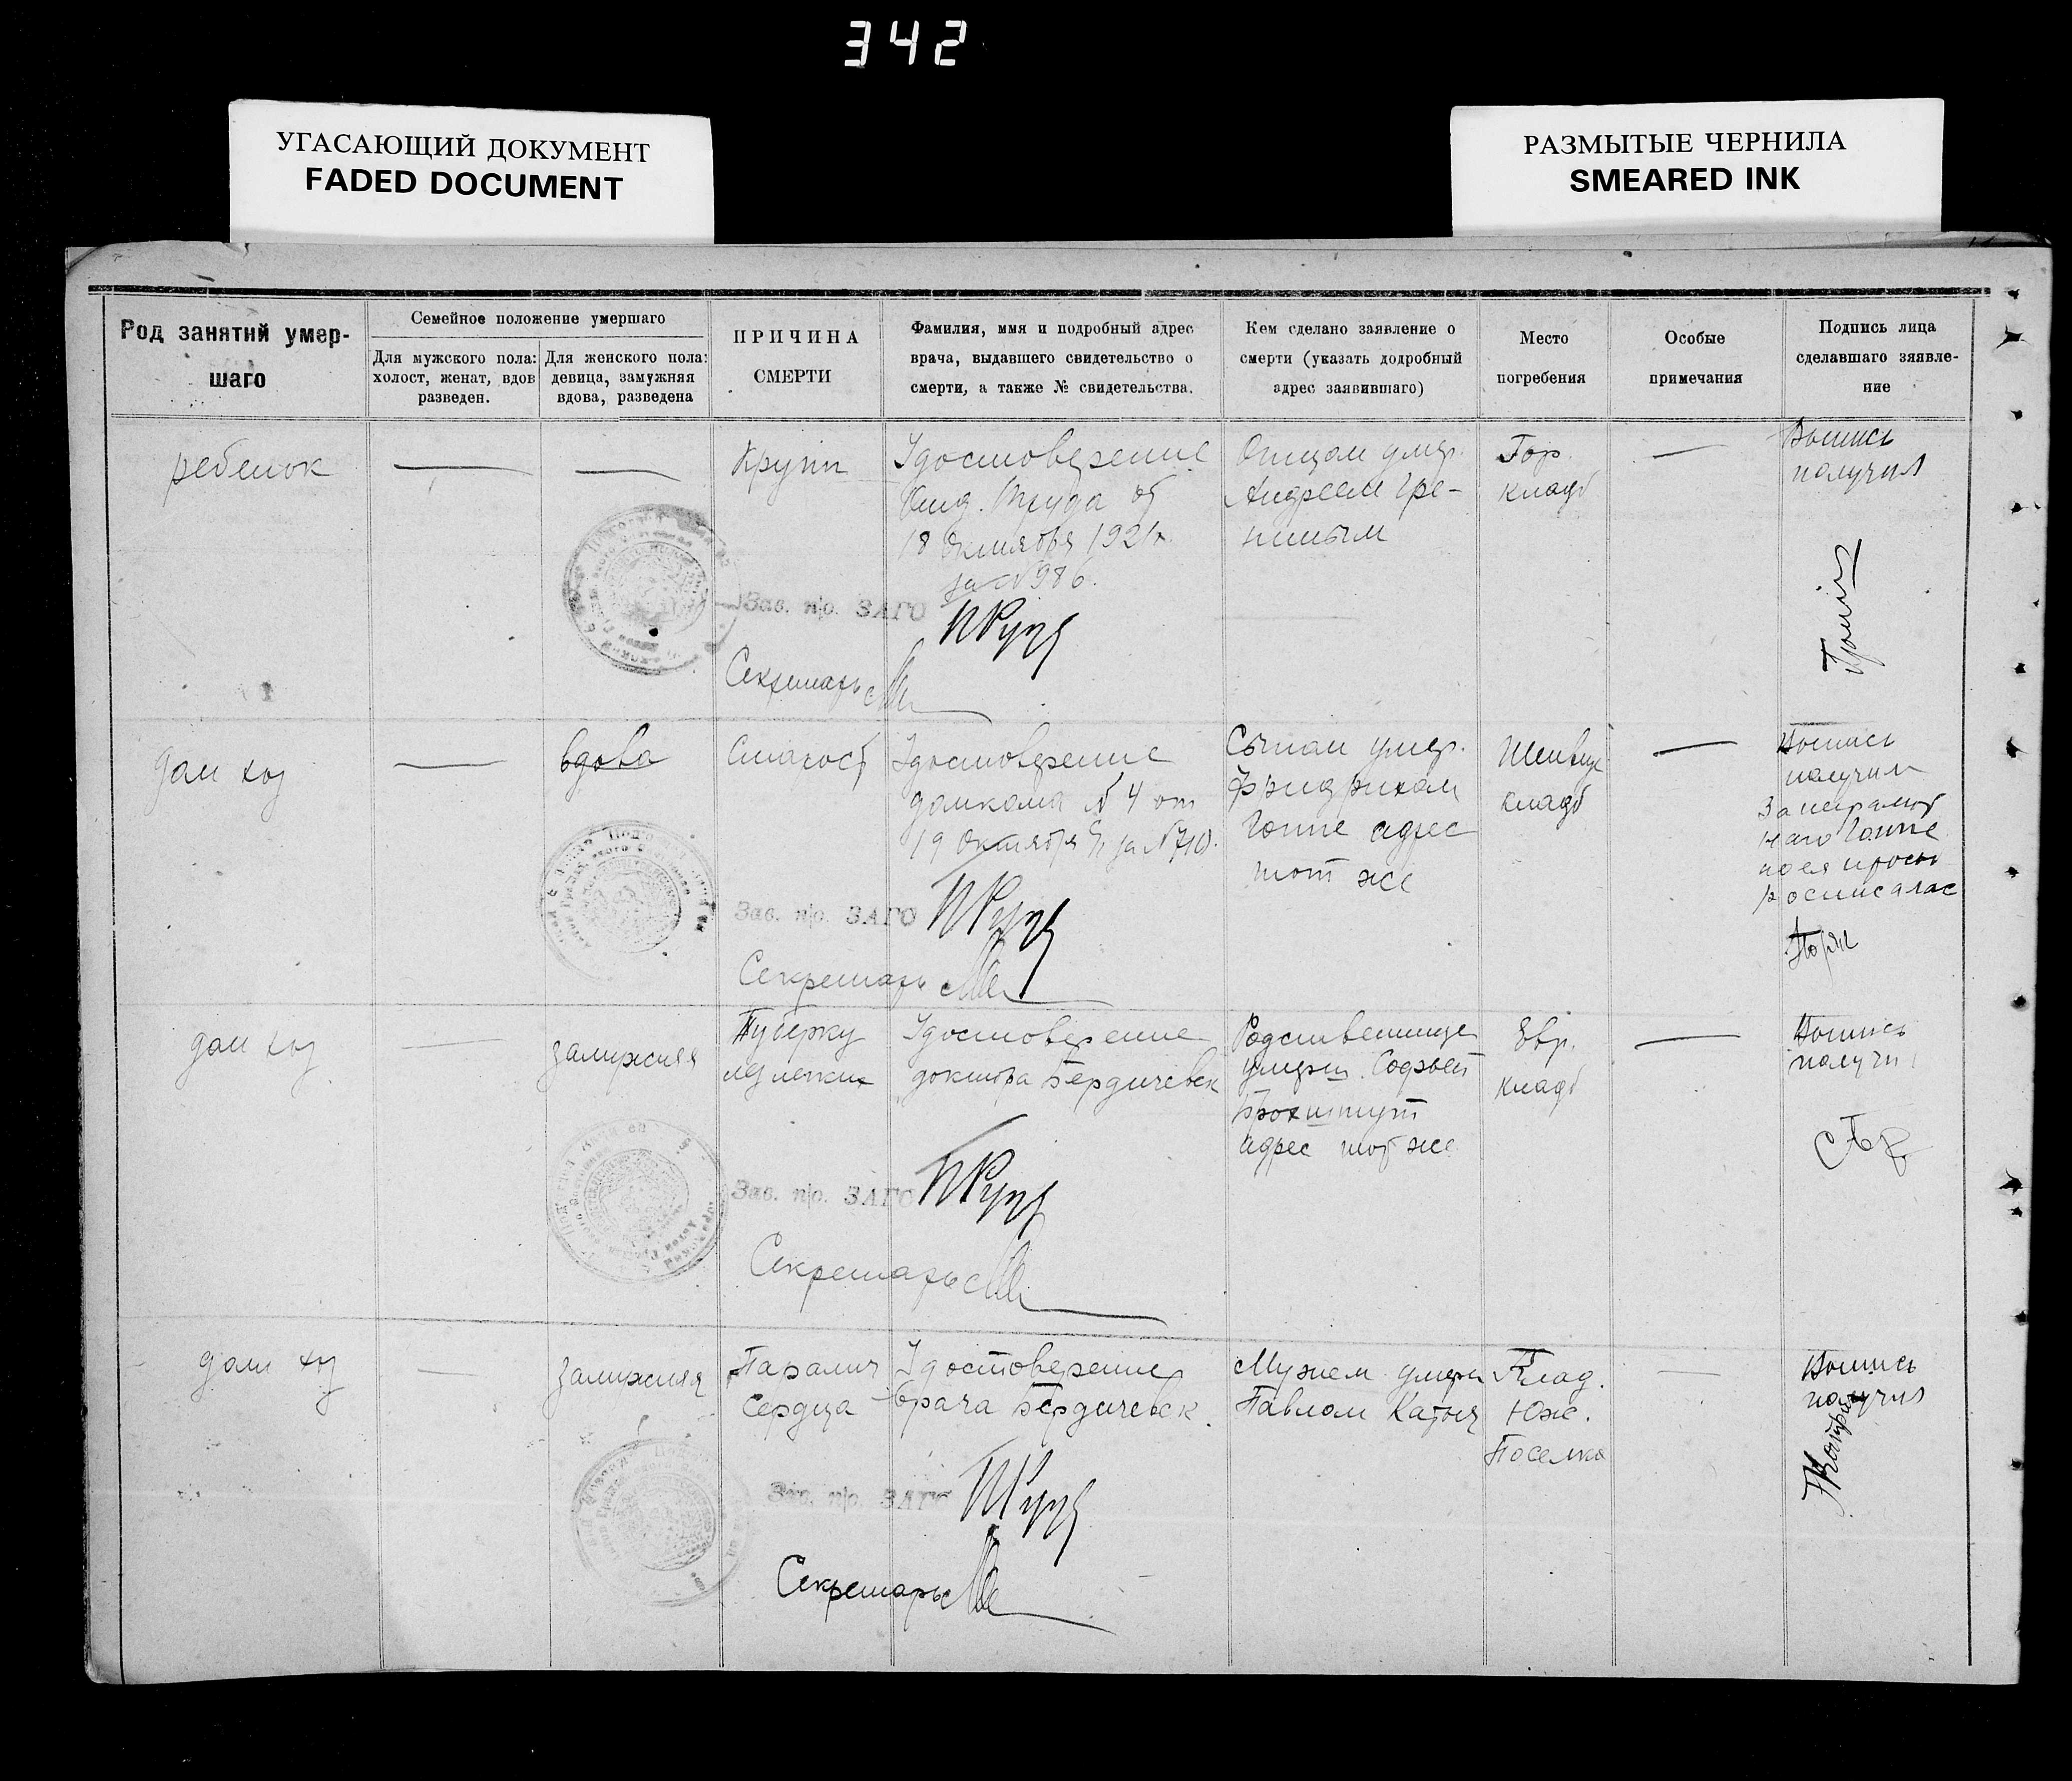 342
УГАСАЮЩИЙ ДОКУМЕНТ
FADED DOCUMENT
РАЗМЫТЫЕ ЧЕРНИЛА
SMEARED INK
Род занятий умер-
шаго
Семейное положение умершаго
Для мужского пола:
холост, женат, вдов
разведен.
Для женского пола:
девица, замужняя
вдова, разведена
ПРИЧИНА
СМЕРТИ
Фамилия, имя и подробный адрес
врача, выдавшего свидетельство о
смерти, а также № свидетельства.
Кем сделано заявление о
смерти (указать додробный
адрес заявившаго)
Место
погребения
Особые
примечания
Подпись лица
сделавшаго зяявле-
ние
ребенок
—
—
Крупп
Удостоверение
Труда от
18 октября 1921 г.
за № 986.
Отцом умер.
Андреем Гре-
Гор.
кладб
—
Выпись
получил
Зав. п/о. ЗАГС
Секретарь
дом хоз
—
вдова
Старост
Удостоверение
домкома № 4 от
19 октября за № 710.
Сыном умер.
Фридрихом
Гоппе адрес
тот же
кладб
—
Выпись
получил
За неграмот
наго Гоппе
по ея прось
росписалас
Зав. п/о. ЗАГС
Секретарь
дом хоз
—
замужняя
Туберку
лез легких
Удостоверение
доктора Бердичевск
Родственнице
умерш.
адрес тот же
Евр.
кладб
—
Выпись
получил
Зав. п/о. ЗАГС
Секретарь
дом хоз
—
замужняя
Паралич
Сердца
Удостоверение
врача Бердичевск.
Мужем умерш
Павлом
Клад.
Юж.
Поселка
—
Выпись
получил
Зав. п/о. ЗАГС
Секретарь